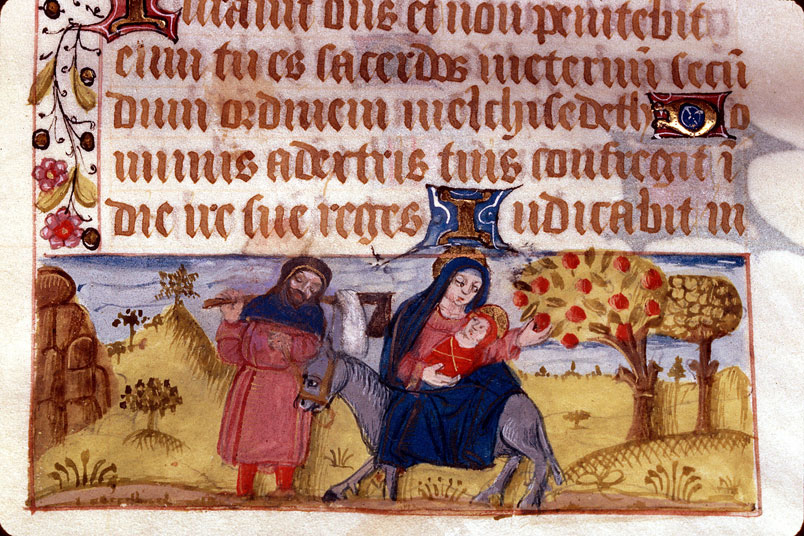 Iurauit dñs et non penitebit
eum tu es sacerdos ineternū secū
dum ordinem melchisedech Do
minus adextris tuis confregit ī
die ire sue reges Iudicabit in